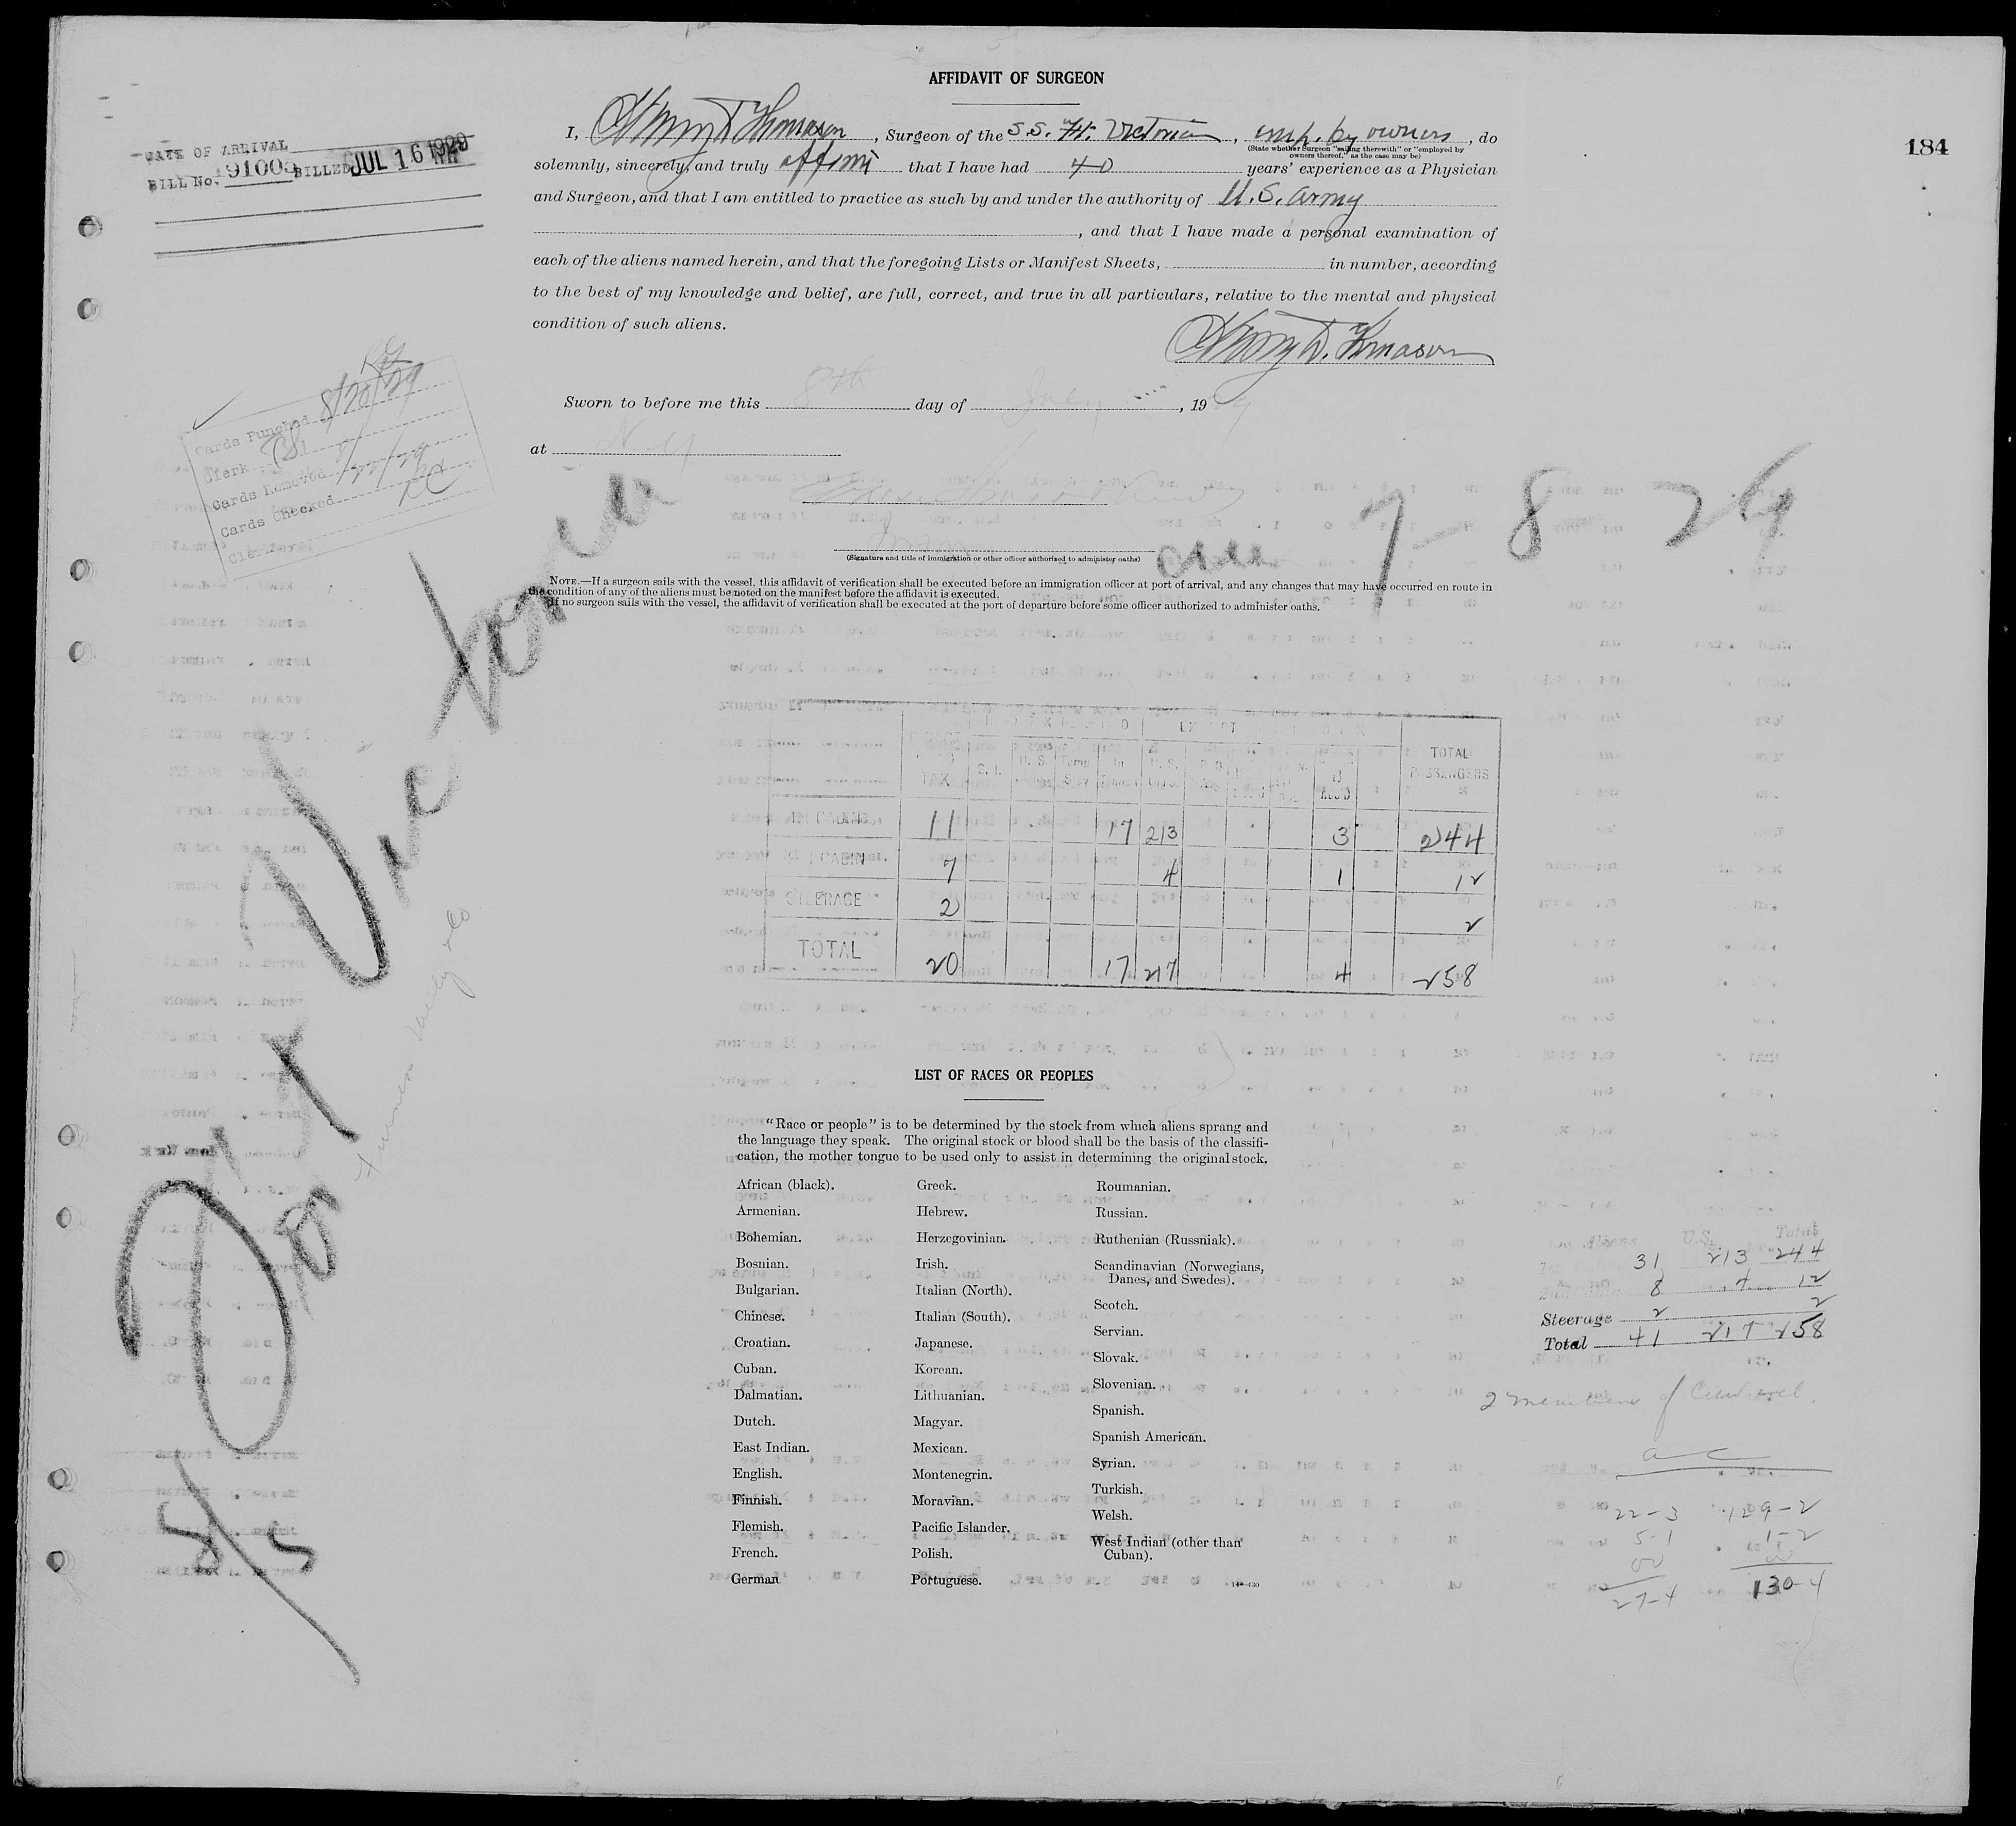 AFFIDAVIT OF SURGEON
184
DATE OF ARRIVAL
BILL No. 191003 BILLED JUL 16 1929
I, Henry D Thomason, Surgeon of the S.S. Ft. Victoria, emp. by owners, do
(State whether Surgeon "sailing therewith" or "employed by
owners thereof," as the case may be)
solemnly, sincerely, and truly affirm that I have had 40 years' experience as a Physician
and Surgeon, and that I am entitled to practice as such by and under the authority of U.S. Army
, and that I have made a personal examination of
each of the aliens named herein, and that the foregoing Lists or Manifest Sheets, in number, according
to the best of my knowledge and belief, are full, correct, and true in all particulars, relative to the mental and physical
condition of such aliens.
Henry D. Thomason
Sworn to before me this 8th day of July, 19
at N Y
(Signature and title of immigration or other officer authorized to administer oaths)
NOTE.—If a surgeon sails with the vessel, this affidavit of verification shall be executed before an immigration officer at port of arrival, and any changes that may have occurred en route in
the condition of any of the aliens must be noted on the manifest before the affidavit is executed.
If no surgeon sails with the vessel, the affidavit of verification shall be executed at the port of departure before some officer authorized to administer oaths.
Cards Punched 8/20/29
Clerk
Cards Removed
Cards Checked
Clerk
Fort Victoria
7-8-29
8/5
TAX
TOTAL PASSENGERS
CABIN 11 17 213 3 244
CABIN 7 4 1 12
STEERAGE 2 2
TOTAL 20 17 217 4 258
LIST OF RACES OR PEOPLES
"Race or people" is to be determined by the stock from which aliens sprang and
the language they speak. The original stock or blood shall be the basis of the classifi-
cation, the mother tongue to be used only to assist in determining the original stock.
African (black).
Armenian.
Bohemian.
Bosnian.
Bulgarian.
Chinese.
Croatian.
Cuban.
Dalmatian.
Dutch.
East Indian.
English.
Finnish.
Flemish.
French.
German
Greek.
Hebrew.
Herzegovinian.
Irish.
Italian (North).
Italian (South).
Japanese.
Korean.
Lithuanian.
Magyar.
Mexican.
Montenegrin.
Moravian.
Pacific Islander.
Polish.
Portuguese.
Roumanian.
Russian.
Ruthenian (Russniak).
Scandinavian (Norwegians,
Danes, and Swedes).
Scotch.
Servian.
Slovak.
Slovenian.
Spanish.
Spanish American.
Syrian.
Turkish.
Welsh.
West Indian (other than
Cuban).
Aliens U.S. Total
31 213 244
8 4 12
Steerage 2 2
Total 41 217 258
2 members of Crew
22-3 129-2
5-1 1-2
27-4 130-4